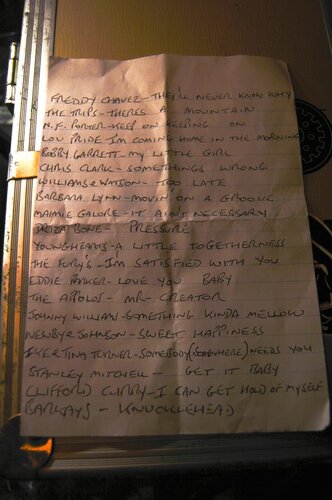 FREDDY CHAVEZ - THEY'LL NEVER KNOW WHY
THE TRIPS - THERES A MOUNTAIN
N.F. PORTER - KEEP ON KEEPING ON
LOU PRIDE I'M COMING HOME IN THE MORNING
BOBBY GARRETT - MY LITTLE GIRL
CHRIS CLARK - SOMETHINGS WRONG
WILLIAMS & WATSON - TOO LATE
BARBARA LYNN - MOVIN ON A GROOVE
MAMIE GALORE - IT AIN'T NECESSARY
DRIZA BONE - PRESSURE
YOUNGHEARTS - A LITTLE TOGETHERNESS
THE FURY'S - I'M SATISFIED WITH YOU
EDDIE PARKER - LOVE YOU BABY
THE APPOLOS - MR - CREATOR
JOHNNY WILLIAMS - SOMETHING KINDA MELLOW
NEWBY & JOHNSON - SWEET HAPPINESS
IKE & TINA TURNER - SOMEBODY (SOMEWHERE) NEEDS YOU
STANLEY MITCHELL - GET IT BABY
CLIFFORD CURRY - I CAN GET HOLD OF MYSELF
BARKAYS - KNUCKLEHEAD